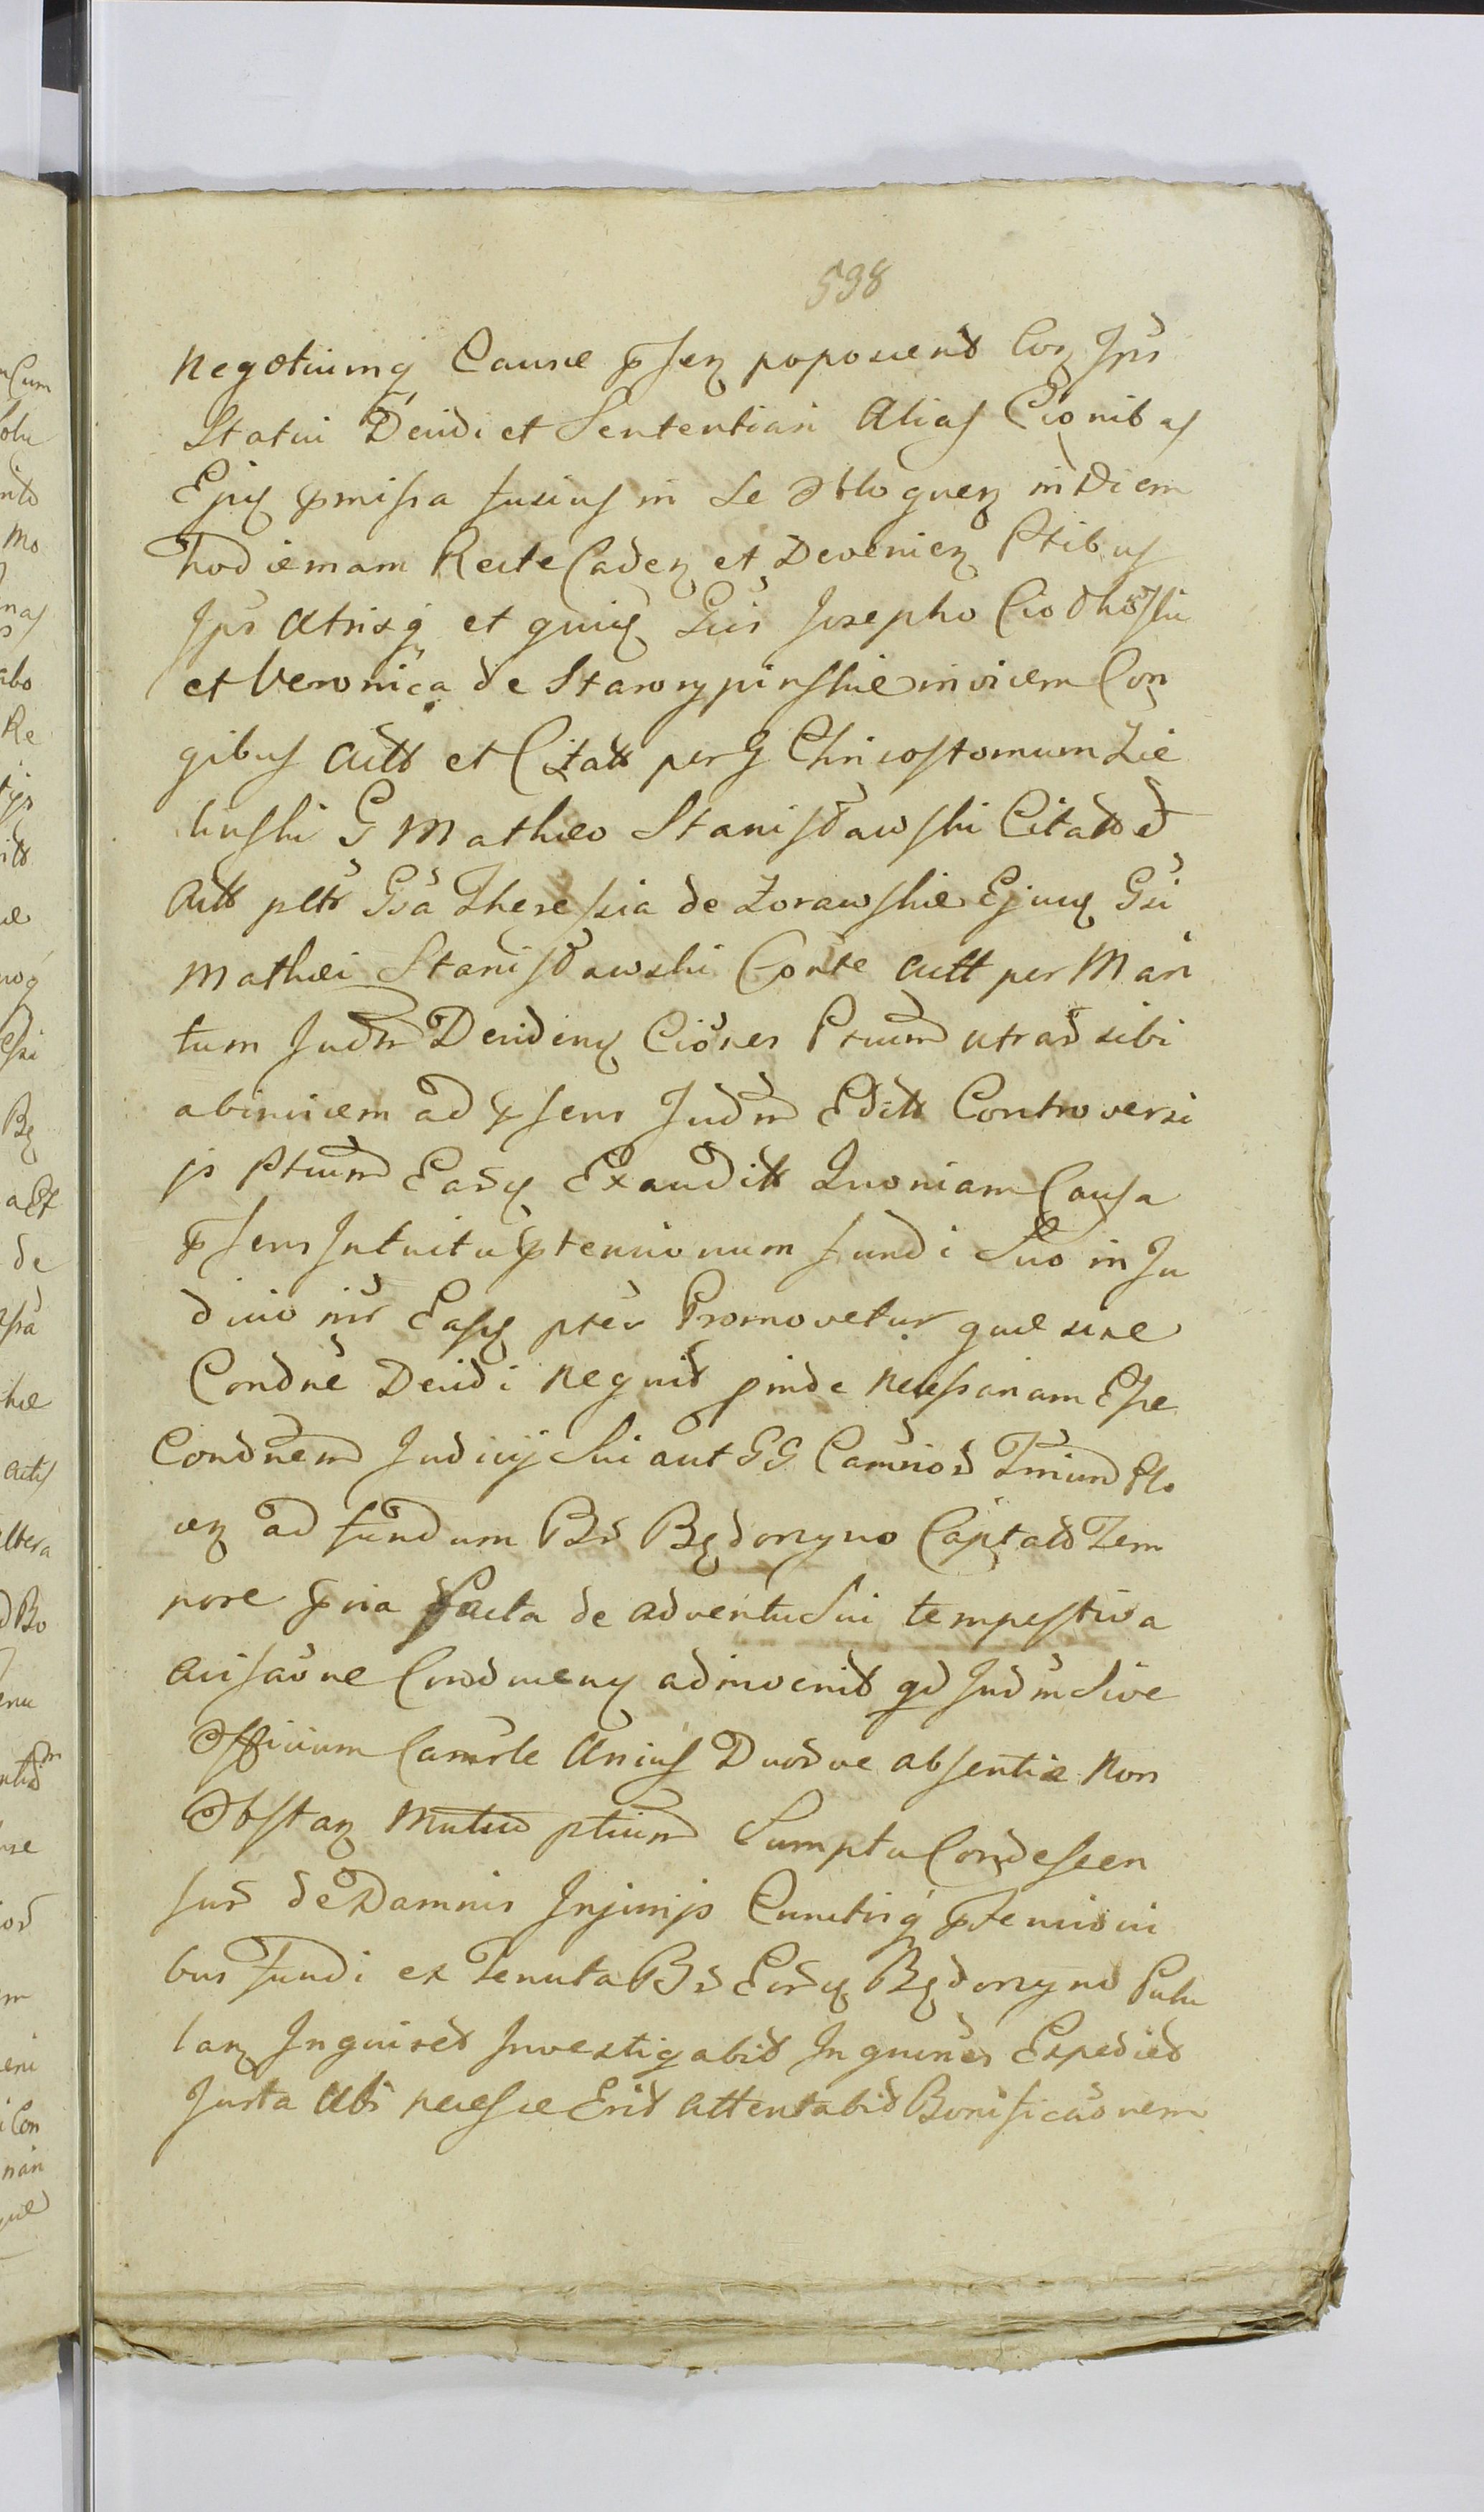 538
negotiumq Causæ pſen poposcend Con Jpis
Statui Decidi et Sententiari Alias Cionibus
Ejus pmiſsa fusius in Se Obloquen in Diem
hodiernam Recte Caden et Devenien Ptibus
Jpis Utrisq et quius Gsis Josepho Ciodkoſki
et Veronica de Starorypinſkie invicem Con
gibus Actt et Citatt per G Chricostomum Zie
linſki G Mathæo Staniſławſki Citatt ad
Actt pltr Gsa Thereſsia de Zorawſkie Ejusq Gsi
Mathæi Staniſławski Conte Actt per Mari
tum Judm Decidens Ciones Ptium utrad sibi
abinvicem ad pſens Judm Editt Controversi
js Ptium Ead Exauditt Quoniam Cauſa
pſens Intuitu ptensionum fundi Suo in Ju
dicio nir Easq ptes Promovetur quæ sine
Condne Decidi nequid pinde neceſsariam Eſse
Condnem Judicij Sui aut GG Camriod Tmium Plo
cen ad fundum Bd Będorzyno Captatd Tem
pore pvia Facta de adventu Sui tempeſtiva
aviſaone Conducens adinvenid qd Judm Sive
Officium Camrle Unius Duorve abſentia Non
Obſtan Mutuo ptium Sumptu Condeſcen
ſurd de Damnis Injurijs Cunctisq ptensioni
bus fundi ex Tenuta Bd Eord Będorzyno Pulu
lan Inquired Investigabid Inquines Expedied
Juxta Ubi neceſse Erid attentabid Bonificaonem